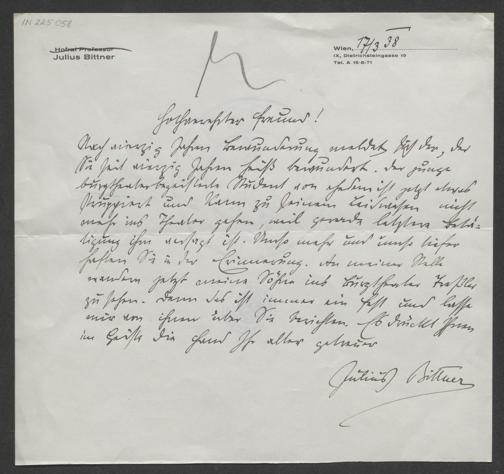 IN 225 058
Hofrat Professor
Julius Bittner
Wien, 17/3 38
IX., Dietrichsteingasse 10
Tel. A 18-8-71
Hochverehrter Freund!
Nach vierzig Jahren Bewunderung meldet sich der, der
Sie seit vierzig Jahren heiß bewundert. Der junge
burgtheaterbegeisterte Student von ehedem ist jetzt etwas
struppiert und kann zu seinem Leidwesen nicht
mehr ins Theater gehen, weil gerade letztere Betä-
tigung ihm versagt ist. Umso mehr und umso tiefer
haften Sie in der Erinnerung. An meiner Stelle
wandern jetzt meine Söhne ins Burgtheater
zu sehen. Denn das ist immer ein Fest und lasse
mir von ihnen über Sie berichten. Es drückt Ihnen
im Geiste die Hand Ihr alter getreuer
Julius Bittner